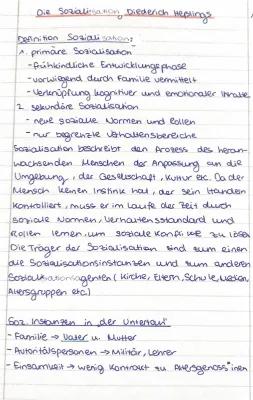 Die Sozialisation Diederich Heßlings
Definition Sozialisation:
1. primäre Sozialisation
- frühkindliche Entwicklungsphase
- vorwiegend durch Familie vermittelt
- Verknüpfung kognitiver und emotionaler Inhalte
2. sekundäre Sozialisation
- neue soziale Normen und Rollen
- nur begrenzte Verhaltensbereiche
Sozialisation beschreibt den Prozess des heran-
wachsenden Menschen der Anpassung an die
Umgebung, der Gesellschaft, Kultur etc. Da der
Mensch keinen Instinkt hat, der sein Handeln
kontrolliert, muss er im Laufe der Zeit durch
soziale Normen, Verhaltensstandard und
Rollen lernen, um soziale Konflikte zu lösen
Die Träger der Sozialisation sind zum einen
die Sozialisationsinstanzen und zum anderen
Sozialisationsagenten (Kirche, Eltern, Schule, Medien,
Altersgruppen etc.)
Soz. Instanzen in "der Untertan"
- Familie → Vater u. Mutter
- Autoritätspersonen → Militär, Lehrer
- Einsamkeit → wenig Kontakt zu Altersgenoss*innen